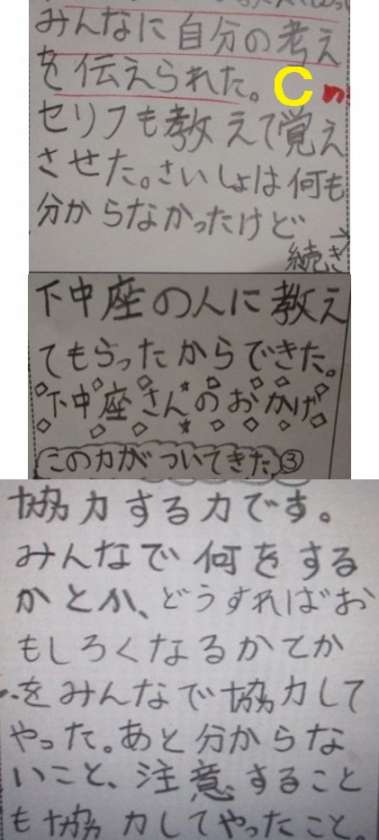 みんなに自分の考え
を伝えられた。C
セリフも教えて覚え
させた。さいしょは何も
分からなかったけど
続き
下中座の人に教え
てもらったからできた。
下中座さんのおかげ
この力がついてきた③
協力する力です。
みんなで何をする
かとか、どうすればお
もしろくなるかてか
をみんなで協力して
やった。あと分からな
いこと、注意すること
も協力してやったこと。